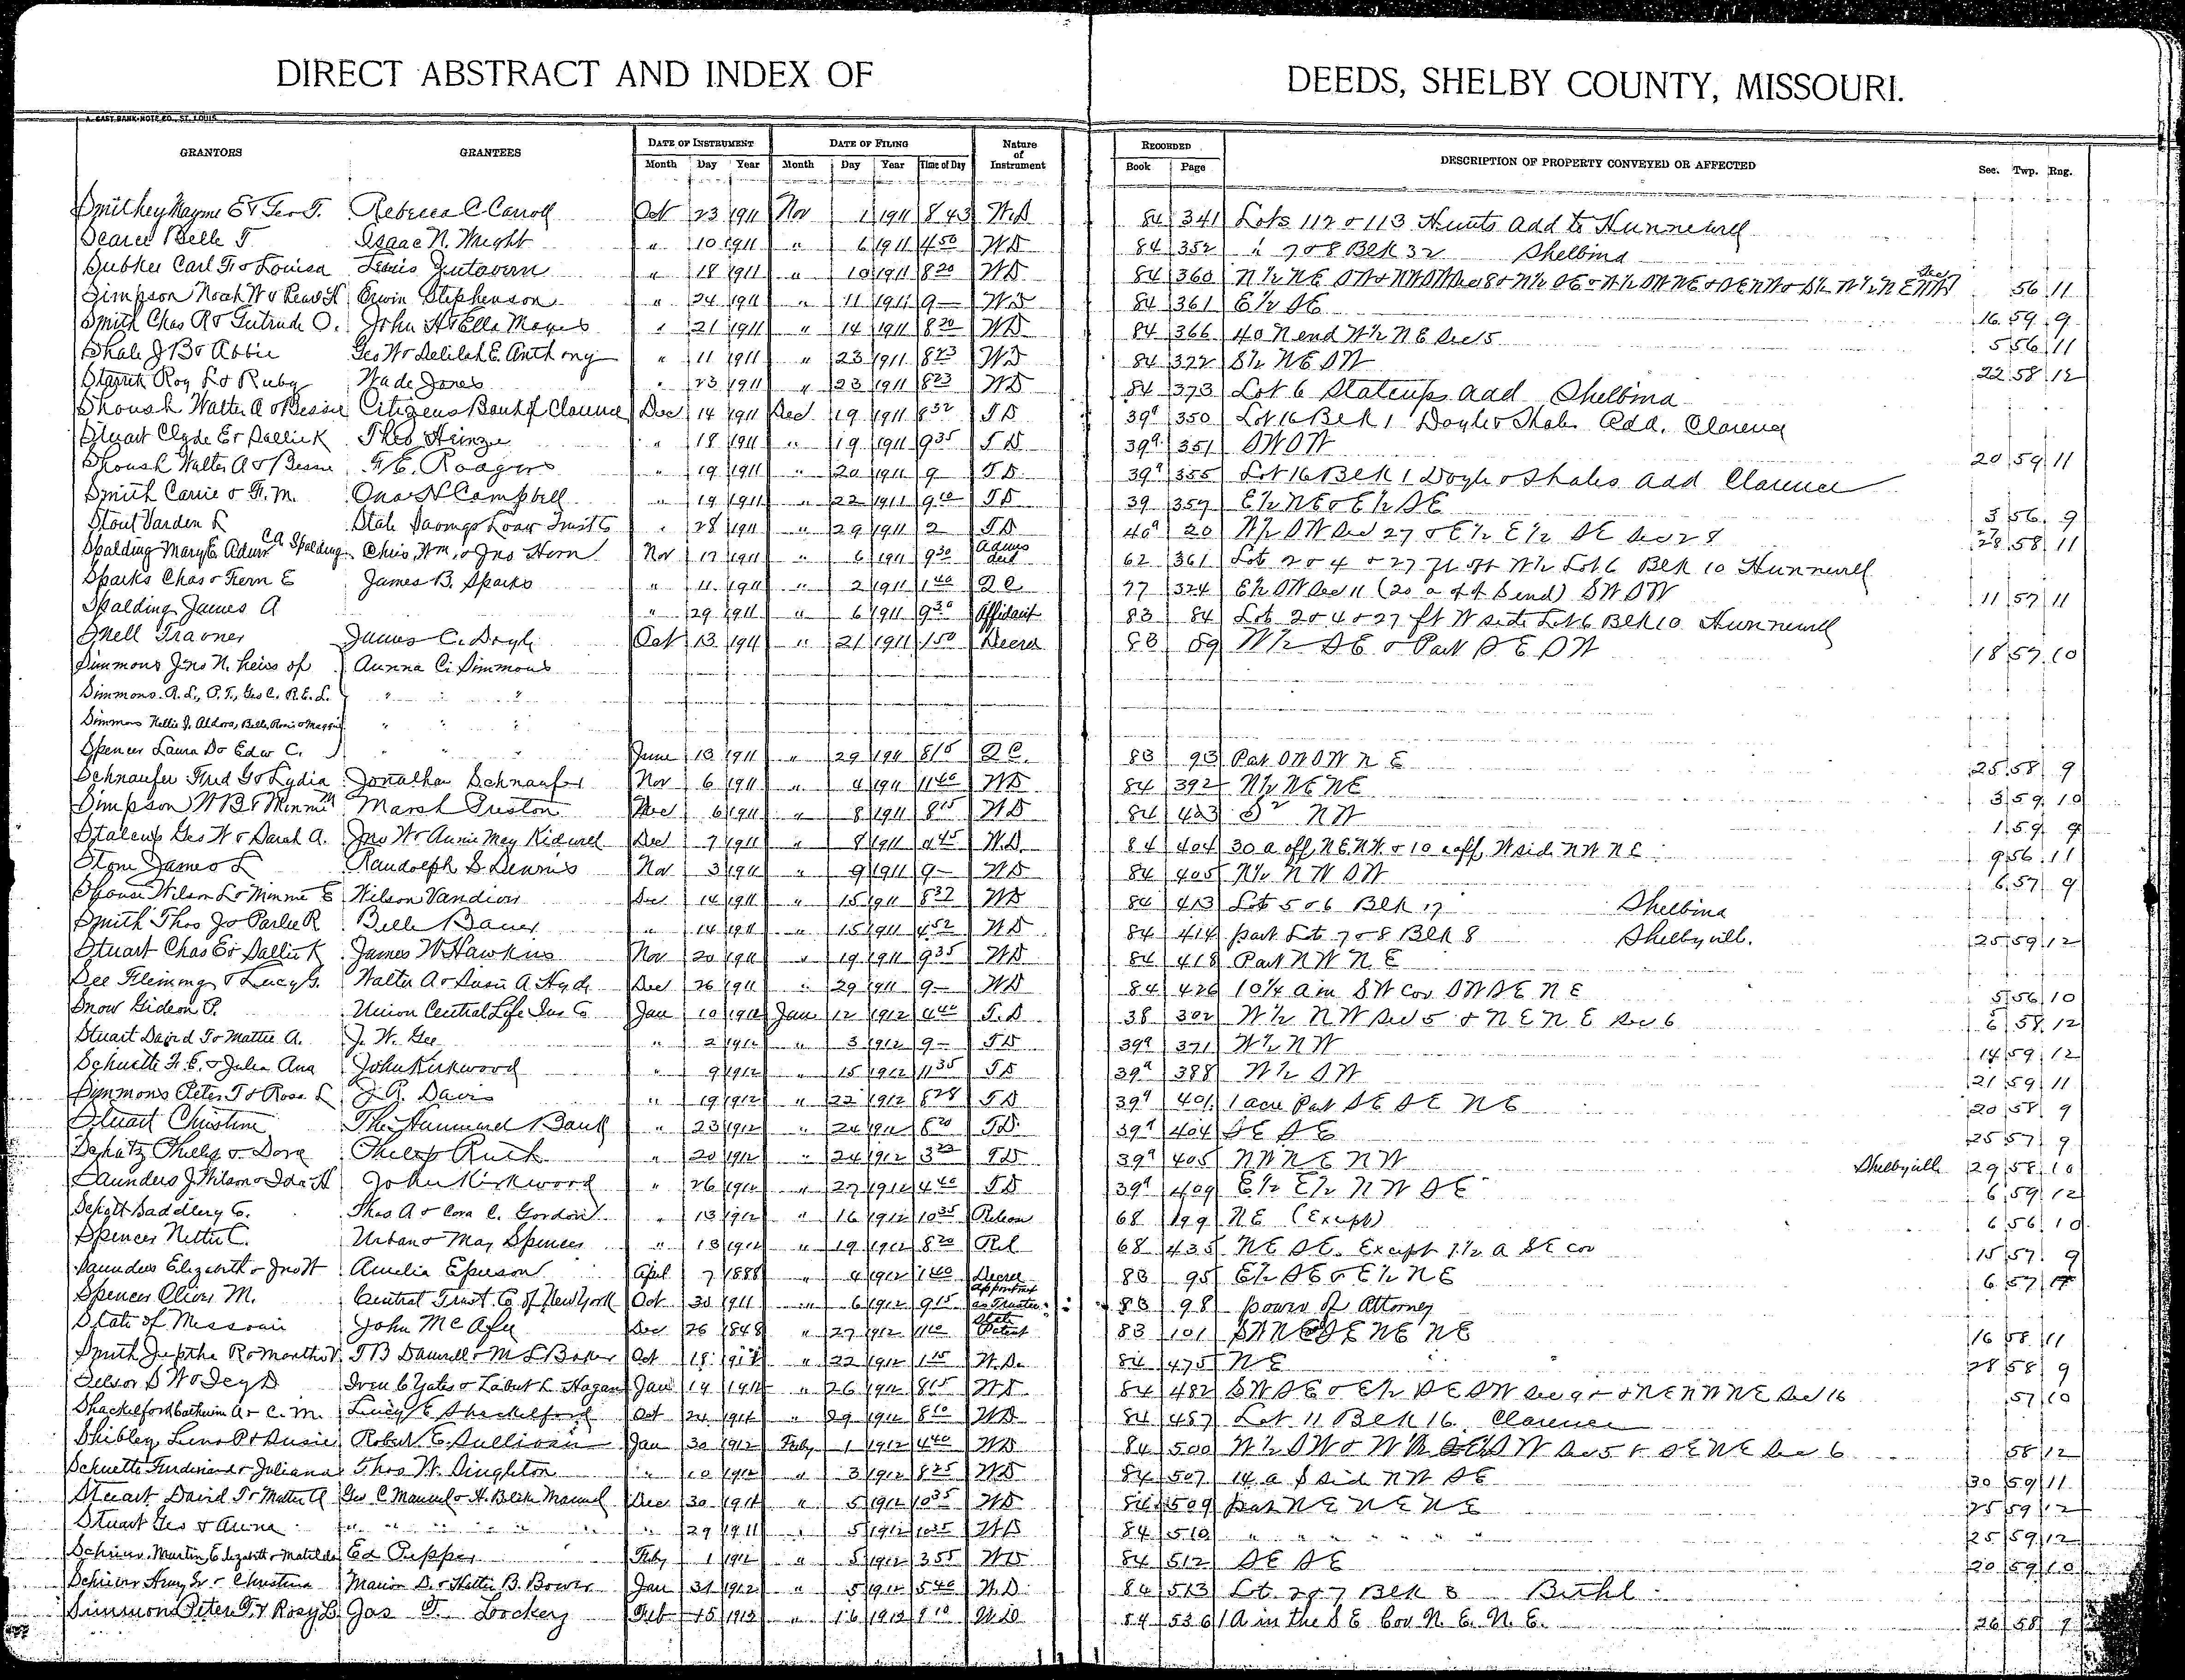 DIRECT ABSTRACT AND INDEX OF DEEDS, SHELBY COUNTY, MISSOURI.
GRANTORS GRANTEES DATE OF INSTRUMENT DATE OF FILING Nature of Instrument RECORDED DESCRIPTION OF PROPERTY CONVEYED OR AFFECTED Sec. Twp. Rng.
Month Day Year Month Day Year Time of Day Book Page
Smithey Mayme E & Geo T. Rebecca C. Carroll Oct 23 1911 Nov 1 1911 8 43 W.D 84 341 Lots 112 & 113 Hunts add to Hunnewell
Searce Belle T Isaac N. Wright " 10 1911 " 6 1911 4 50 WD 84 352 " 7 & 8 Blk 32 Shelbina
Carl F. & Louisa " 18 1911 " 10 1911 8 20 WD 84 360 56 11
Simpson Noah W & Erwin Stephenson " 24 1911 " 11 1911 9 — WD 84 361 E½ SE 16 59 9
Smith Chas R & Gertrude O. John H & Ella Mayes " 21 1911 " 14 1911 8 20 WD 84 366 40 N end W½ NE Sec 5 5 56 11
Shale J B & Abbie Geo W & Delilah E. Anthony " 11 1911 " 23 1911 8 23 WD 84 372 S½ NE SW 22 58 12
Roy L & Ruby Wade Jones " 23 1911 " 23 1911 8 23 WD 84 373 Lot 6 Stalcups add Shelbina
Shoush Walter A & Bessie Citizens Bank of Clarence Dec 14 1911 Dec 19 1911 8 32 TD 39a 350 Lot 16 Blk 1 Doyle & Shale Add. Clarence
Stuart Clyde E & Sallie K Theo Heinze " 18 1911 " 19 1911 9 35 TD 39a 351 SW SW 20 59 11
Shoush Walter A & Bessie Rodgers " 19 1911 " 20 1911 9 TD 39a 355 Lot 16 Blk 1 Doyle & Shales add Clarence
Smith Carrie & F. M. Campbell " 19 1911 " 22 1911 9 10 TD 39 359 E½ NE & E½ SE 3 56 9
Stout Varden L State Savings Loan Trust Co " 28 1911 " 29 1911 2 TD 40a 20 W½ SW Sec 27 & E½ E½ SE Sec 28 27 28 58 11
Spalding Mary E. Admr C A Spalding Chris, Wm, & Jno Horn Nov 17 1911 " 6 1911 9 30 Admrs deed 62 361 Lot 2 & 4 & 27 ft off W½ Lot 6 Blk 10 Hunnewell
Sparks Chas & Fern E James B. Sparks " 11 1911 " 2 1911 1 40 QC 77 324 E½ SW Sec 11 (20 a off S end) SW SW 11 57 11
Spalding James A " 29 1911 " 6 1911 9 30 Affidavit 83 84 Lot 2 & 4 & 27 ft W side Lot 6 Blk 10 Hunnewell
Snell James C. Doyle Oct 13 1911 " 21 1911 1 50 Decree 83 89 W½ SE & Part SE SW 18 57 10
Simmons Jno N. heirs of Aunna C. Simmons
Simmons R. L., P. T., Geo C., R. E. L. " " "
Simmons Nellie J. Aldora, Belle, Rosie & Maggie " " "
Spencer Laura D & Edw C. " " " June 13 1911 " 29 1911 8 15 QC. 83 93 Part SW SW NE 25 58 9
Schnaufer Fred G & Lydia Jonathan Schnaufer Nov 6 1911 " 4 1911 11 40 WD 84 392 N½ NE NE 3 59 10
Simpson W B & Minnie M Marsh Preston Dec 6 1911 " 8 1911 8 15 WD 84 403 S² NW 1 59 9
Stalcup Geo W & Sarah A. Jno W & Annie May Kidwell Dec 7 1911 " 8 1911 4 45 W.D. 84 404 30 a off NE NW & 10 a off W side NW NE 9 56 11
Stone James L Randolph S. Dennis Nov 3 1911 " 9 1911 9 — WD 84 405 N½ NW SW 6 57 9
Wilson L & Minnie E Wilson Vandiver Dec 14 1911 " 15 1911 8 32 WD 84 413 Lot 5 & 6 Blk 17 Shelbina
Smith Thos J & Parlee R Belle Bauer " 14 1911 " 15 1911 4 52 WD 84 414 part Lots 7 & 8 Blk 8 Shelbyville
Stuart Chas E & Sallie K James W Hawkins Nov 20 1911 " 19 1911 9 35 WD 84 418 Part NW NE 25 59 12
See Flemming & Lucy G. Walter A & Susie A Hyde Dec 26 1911 " 29 1911 9 — WD 84 426 10¼ a in SW cor SW SE NE 5 56 10
Snow Gideon P. Union Central Life Ins Co Jan 10 1912 Jan 12 1912 4 40 T.D 38 302 W½ NW Sec 5 & NE NE Sec 6 6 58 12
Stuart David T & Mattie A. J. W. Gee " 2 1912 " 3 1912 9 — TD 39a 371 W½ NW 14 59 12
Schuette F. E. & Julia Ana John Kirkwood " 9 1912 " 15 1912 11 35 TD 39a 388 W½ SW 21 59 11
Simmons Peter T & Rosa L Davis " 19 1912 " 22 1912 8 28 TD 39a 401 1 acre Part SE SE NE 20 58 9
Stuart Christine The Hunnewell Bank " 23 1912 " 24 1912 8 20 TD. 39a 404 SE SE 25 57 9
Schatz Philip & Dora Philip Ruth " 20 1912 " 24 1912 3 22 TD 39a 405 NW NE NW Shelbyville 29 58 10
Saunders J Wilson & Ida H John Kirkwood " 26 1912 " 27 1912 4 40 TD 39a 409 E½ E½ NW SE 6 59 12
Schott Saddlery Co. Thos A & Cora C. Gordon " 13 1912 " 16 1912 10 35 Release 68 199 NE (Except) 6 56 10
Spencer Nettie C. Urban & May Spencer " 18 1912 " 19 1912 8 20 Rel 68 435 NE SE. Except 1½ a SE cor 15 57 9
Saunders Elizabeth & Jno W Amelia Epperson April 7 1888 " 4 1912 1 40 Decree 83 95 E½ SE & E½ NE 6 57
Spencer Oliver M. Central Trust Co of New York Oct 30 1911 " 6 1912 9 15 Appointmt as Trustee 83 98 power of Attorney
State of Missouri John McAfee Dec 26 1848 " 27 1912 11 10 State Patent 83 101 NE NE 16 58 11
Smith Jeptha R & Martha V. T B Damrell & M L Baker Oct 18 " 22 1912 1 15 W.D. 84 475 NE 28 58 9
S W & Jan 19 1912 " 26 1912 8 15 WD 84 482 SW SE & E½ SE SW Sec 9 & NE NW NE Sec 16 57 10
Shackelford Catherine A & C. M. Lucy E Shackelford Oct 24 " 29 1912 8 10 WD 84 487 Lot 11 Blk 16 Clarence
Shibley & Susie Robert E. Sullivan Jan 30 1912 Feby 1 1912 4 40 WD 84 500 W½ SW & Sec 5 & SE NE Sec 6 58 12
Schuette Ferdinand & Juliana Thos W. Singleton " 10 1912 " 3 1912 8 25 WD 84 507 14 a S side NW SE 30 59 11
Stuart David T & Mattie A Geo C Manuel & H. Manuel Dec 30 1911 " 5 1912 10 35 WD 84 509 part NE NE NE 25 59 12
Stuart Geo & Anna " " " " " 29 1911 " 5 1912 10 35 WD 84 510 " " " " 25 59 12
Martin, Elizabeth & Matilda Ed Pepper Feby 1 1912 " 5 1912 3 55 WD 84 512 SE SE 20 59 10
& Christina Marion D. & Hattie B. Bower Jan 31 1912 " 5 1912 5 40 W.D. 84 513 Lot 2 & 7 Blk 3 Bethel
Simmons Peter T & Rosy L. Jas T. Lockery Feb 15 1912 " 16 1912 8 10 W.D 84 536 1 A in the S E Cor N. E. N. E. 26 58 9